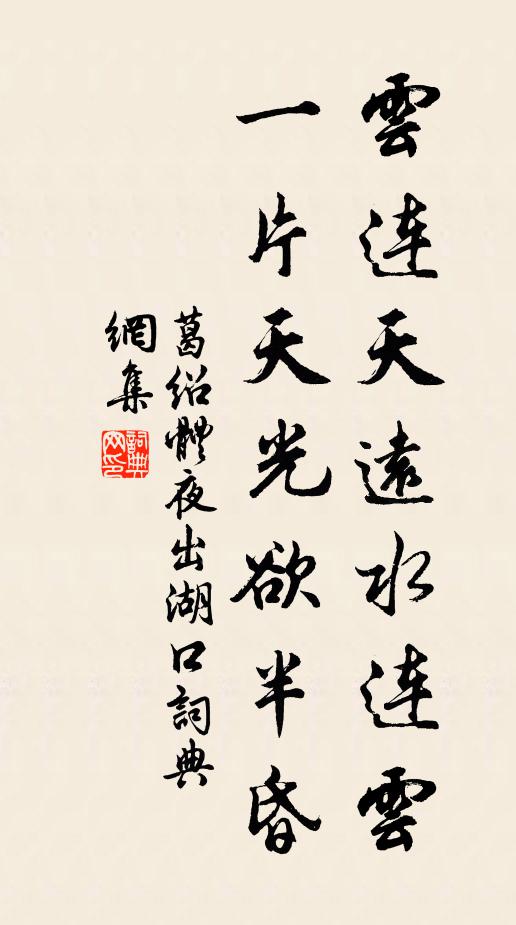 雲連天遠水連雲
一片天光欲半昏
葛紹體夜出湖口詞典
網集
詞典
网印